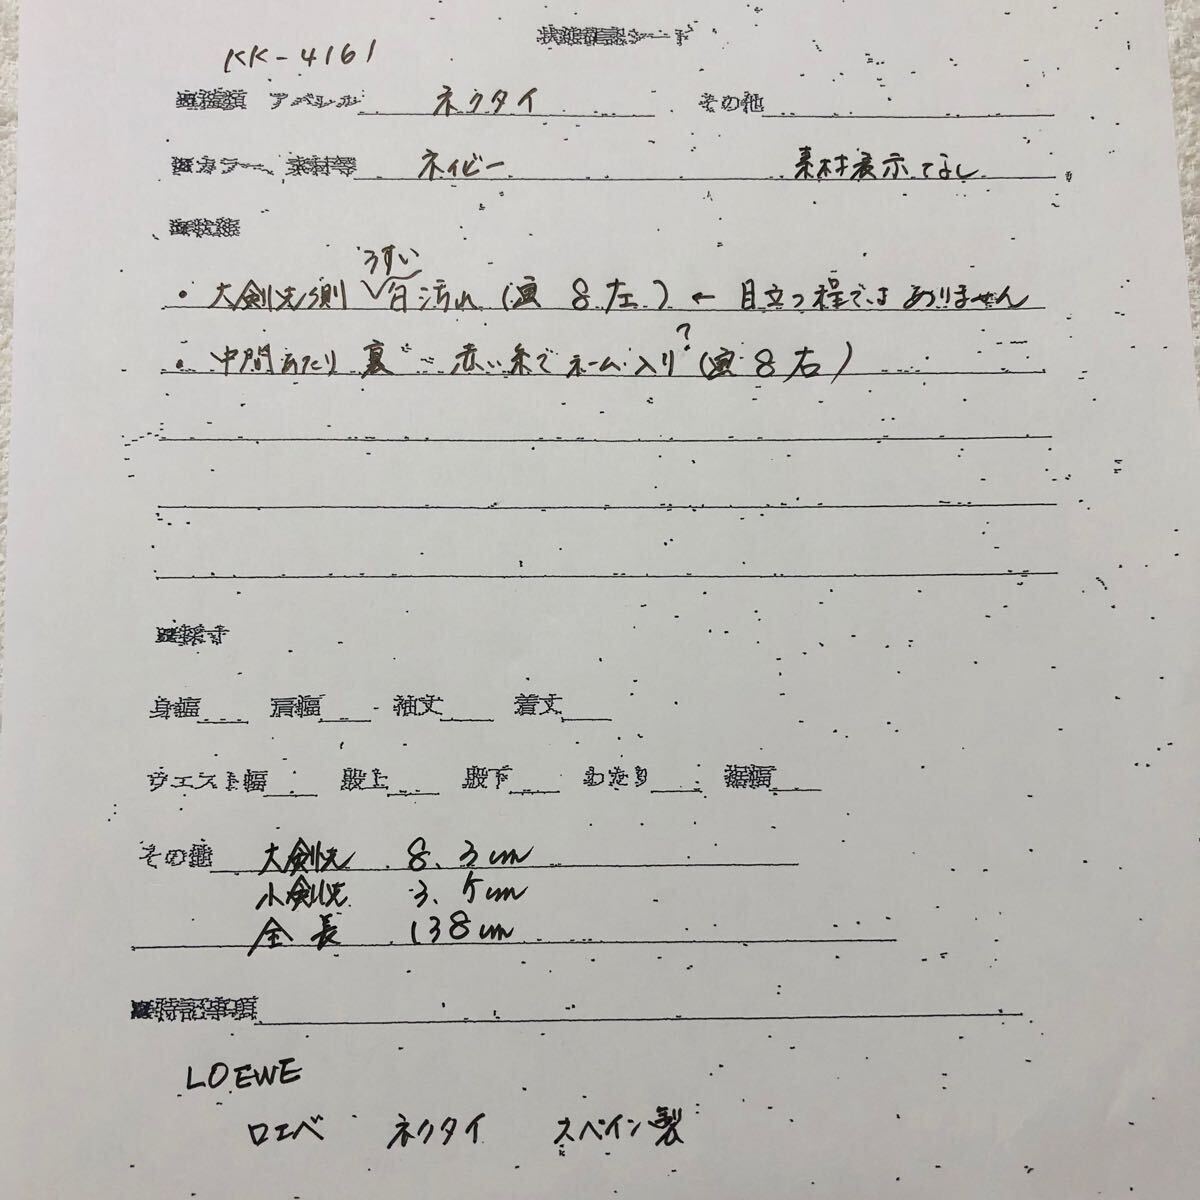 状態確認シート
KK-4161
■種類 アパレル ネクタイ その他
■カラー、素材等 ネイビー 素材表示なし
■状態
うすい
・大剣先側 白汚れ (画8左) ← 目立つ程ではありません
・中間あたり 裏 赤い糸でネーム入り? (画8右)
■採寸
身幅 肩幅 袖丈 着丈
ウエスト幅 股上 股下 わたり 裾幅
その他 大剣先 8.3cm
小剣先 3.5cm
全長 138cm
■特記事項
LOEWE
ロエベ ネクタイ スペイン製